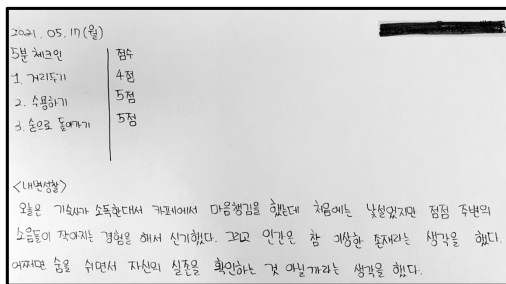 2021. 05. 17 (월)
5분 체크인 점수
1. 거리두기 4점
2. 수용하기 5점
3. 숨으로 돌아가기 5점
<내면성찰>
오늘은 기숙사가 소독한대서 카페에서 마음챙김을 했는데 처음에는 낯설었지만 점점 주변의
소음들이 작아지는 경험을 해서 신기했다. 그리고 인간은 참 이상한 존재라는 생각을 했다.
어쩌면 숨을 쉬면서 자신의 실존을 확인하는 것 아닐까라는 생각을 했다.